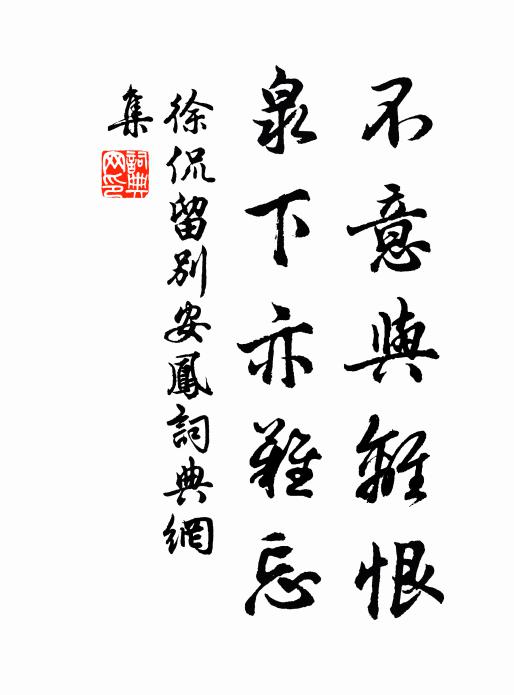 不意與離恨
泉下亦難忘
徐侃留別安鳳詞典網
集
詞典
網印